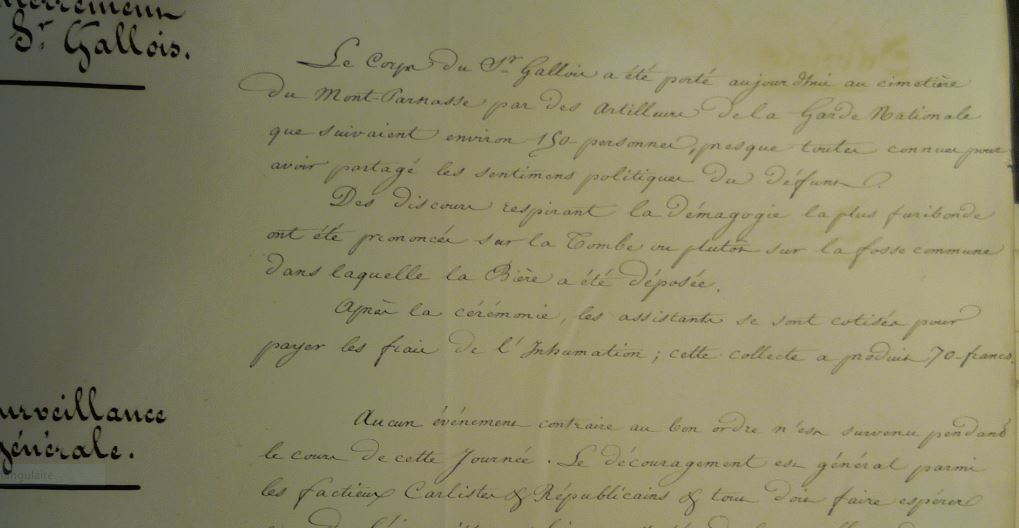 Enterrement
Sr Gallois.
Le Corps du Sr Gallois a été porté aujourd'hui au cimetière
du Mont-Parnasse par des Artilleurs de la Garde Nationale
que suivaient environ 150 personnes, presque toutes connues pour
avoir partagé les sentimens politiques du défunt.
Des discours respirant la démagogie la plus furibonde
ont été prononcés sur la Tombe ou plutôt sur la fosse commune
dans laquelle la Bière a été déposée.
Après la cérémonie, les assistants se sont cotisés pour
payer les frais de l'Inhumation; cette collecte a produit 70 francs.
Surveillance
générale.
Aucun événement contraire au bon ordre n'est survenu pendant
le cours de cette Journée. Le découragement est général parmi
les factieux Carlistes & Républicains & tout doit faire espérer